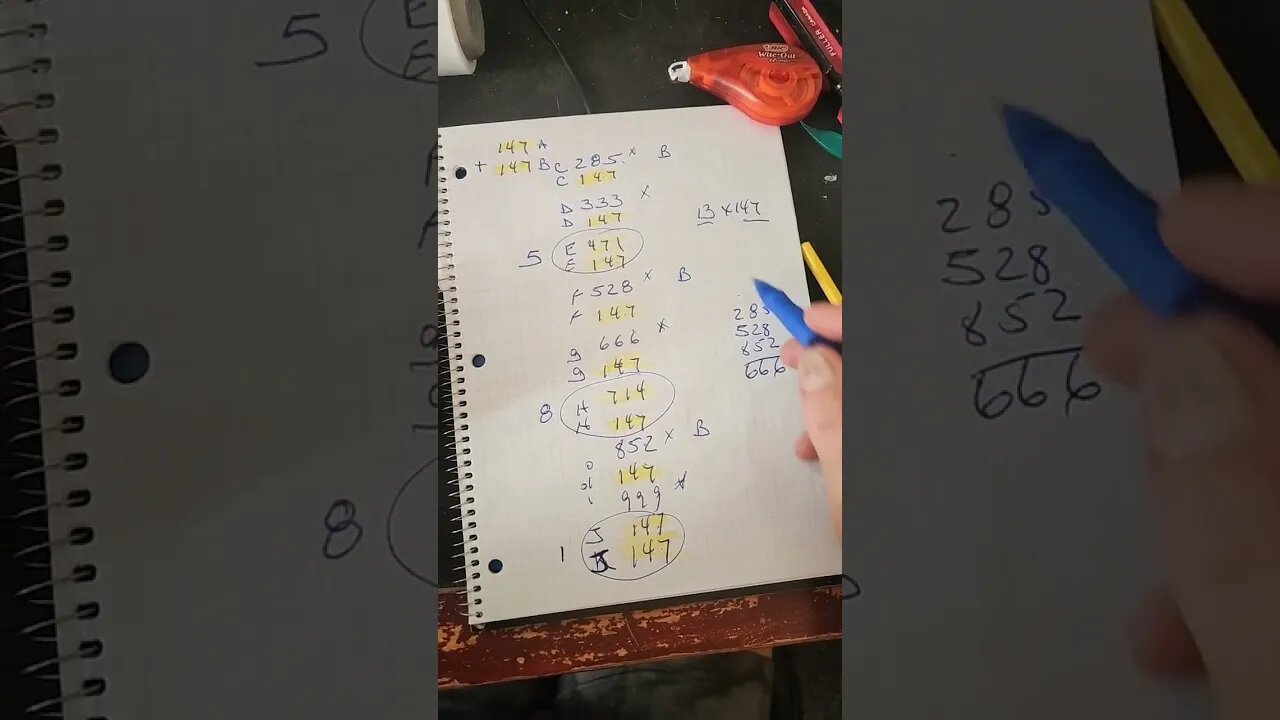 147 A
+ 147 B
C 285 x B
C 147
D 333 x
D 147
13 x 147
5 E 471
E 147
F 528 x B
F 147
g 666 x
g 147
8 H 714
H 147
852 x B
147
999 x
J 147
1 147
28
528
852
666
BIC
Wite-Out
FULLER